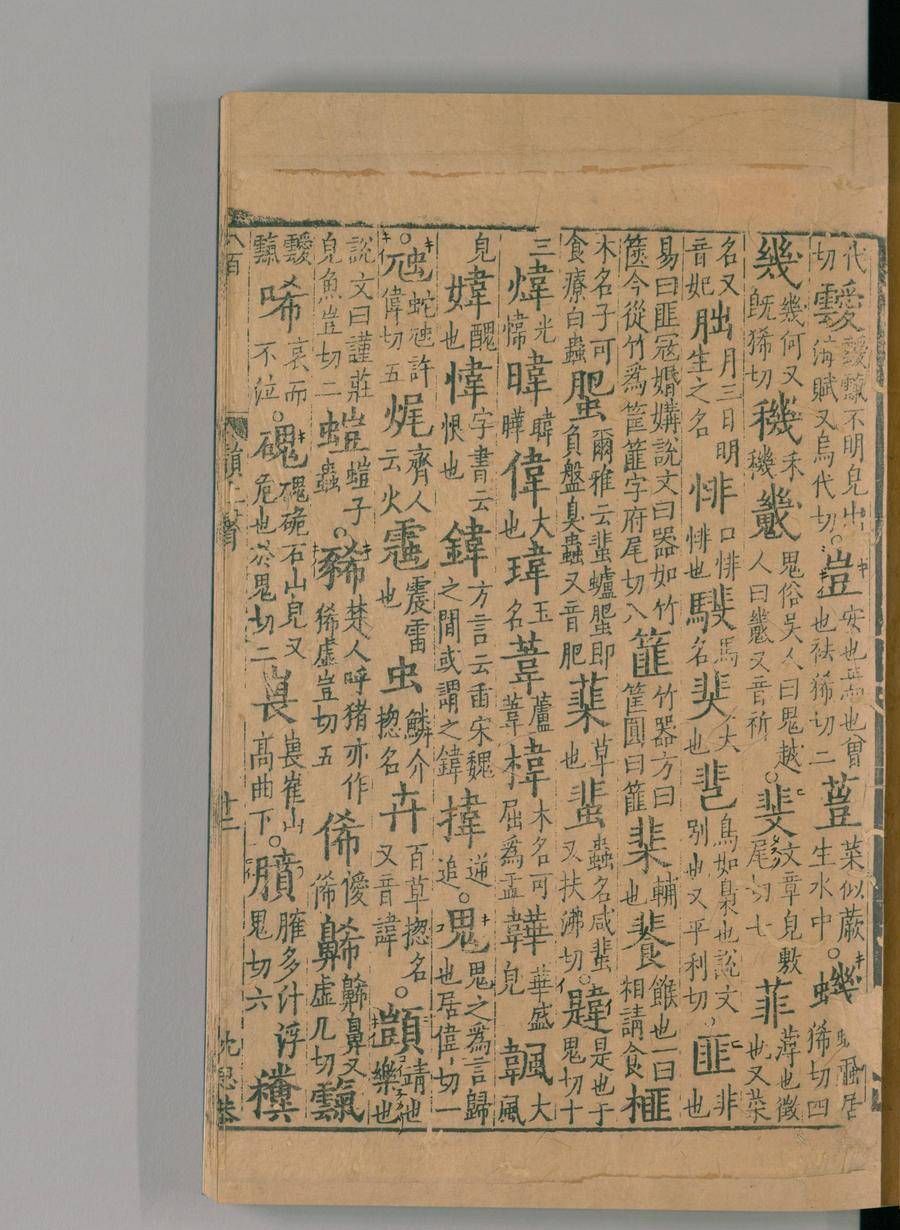 代切靉靉霼不明皃出海賦又烏代切豈安也焉也曾也袪狶切二䔇菜似蕨生水中蟣蟣蝨居狶切四
幾幾何又旣狶切穖禾穖鬼俗吳人曰鬼越人曰又音祈斐文章皃敷尾切七菲薄也徵也又菜
名又音妃朏月三日明生之名悱口悱悱也馬名犬也鳥如梟也說文别也又平利切匪非也
易曰匪寇婚媾說文曰器如竹篋今從竹爲筐篚字府尾切八篚竹器方曰筐圓曰篚棐輔也餥餱也一曰相請食榧
木名子可食療白蟲蜰爾雅云蜚蠦蜰即負盤臭蟲又音肥草也蜚蟲名咸蜚又扶沸切韙是也于鬼切十
三煒光煒暐暐曄偉大也瑋玉名葦蘆葦椲木名可屈爲盂韡華盛皃颹大風
皃媁醜也愇字書云恨也鍏方言云臿宋魏之間或謂之鍏㨒逆追鬼鬼之爲言歸也居偉切一
虺蛇虺許偉切五㷄齊人云火震雷也虫鱗介揔名卉百草揔名又音諱顗靖也樂也
說文曰謹莊皃魚豈切二螘螘子蟲豨楚人呼豬亦作狶虛豈切五俙僾俙䶌䶌鼻又虛几切霼
靉霼唏哀而不泣磈磈硊石山皃又危也於鬼切二嵔嵔崔山高曲下膹臛多汁浮鬼切六
八百 韻上聲 廿二 沈思恭